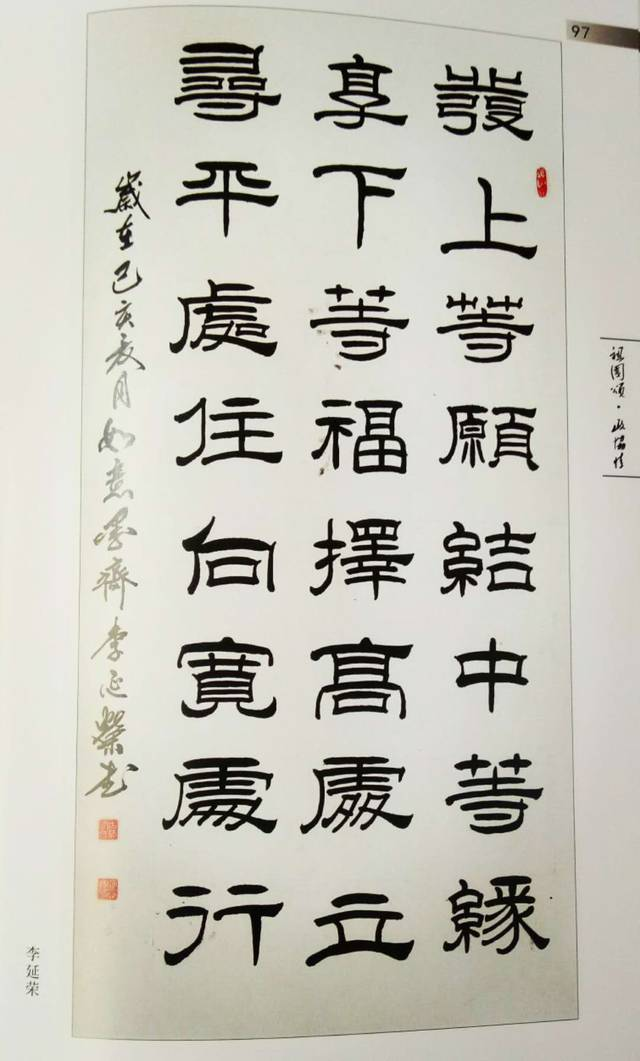 97
發上等願結中等緣
享下等福擇高處立
尋平處住向寬處行
歲在己亥夏月如意墨齋李延榮书
祖國頌·政協情
李延荣